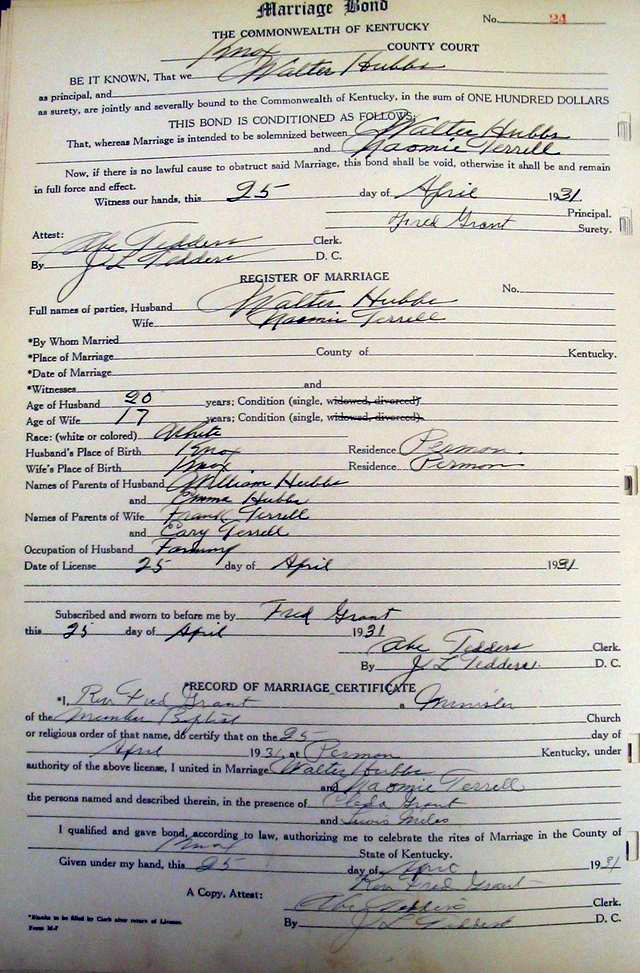 Marriage Bond
No. 24
THE COMMONWEALTH OF KENTUCKY
Knox COUNTY COURT
BE IT KNOWN, That we Walter Hubbs
as principal, and
as surety, are jointly and severally bound to the Commonwealth of Kentucky, in the sum of ONE HUNDRED DOLLARS
THIS BOND IS CONDITIONED AS FOLLOWS:
That, whereas Marriage is intended to be solemnized between Walter Hubbs
and Naomie Terrell
Now, if there is no lawful cause to obstruct said Marriage, this bond shall be void, otherwise it shall be and remain
in full force and effect.
Witness our hands, this 25 day of April 1931.
Principal.
Fred Grant Surety.
Attest:
Abe Tedders Clerk.
By J L Tedders D. C.
REGISTER OF MARRIAGE
No.
Full names of parties, Husband Walter Hubbs
Wife Naomie Terrell
*By Whom Married
*Place of Marriage County of Kentucky.
*Date of Marriage
*Witnesses and
Age of Husband 20 years; Condition (single, widowed, divorced)
Age of Wife 17 years; Condition (single, widowed, divorced)
Race: (white or colored) White
Husband's Place of Birth Knox Residence Permon
Wife's Place of Birth Knox Residence Permon
Names of Parents of Husband William Hubbs
and Emma Hubbs
Names of Parents of Wife Frank Terrell
and Cary Terrell
Occupation of Husband Farming
Date of License 25 day of April 1931
Subscribed and sworn to before me by Fred Grant
this 25 day of April 1931
Abe Tedders Clerk.
By J L Tedders D. C.
*RECORD OF MARRIAGE CERTIFICATE
*I, Rev Fred Grant a Minister
of the Baptist Church
or religious order of that name, do certify that on the 25 day of
April 1931 at Permon Kentucky, under
authority of the above license, I united in Marriage Walter Hubbs
and Naomie Terrell
the persons named and described therein, in the presence of Cleda Grant
and Lewis Miles
I qualified and gave bond, according to law, authorizing me to celebrate the rites of Marriage in the County of
Knox State of Kentucky.
Given under my hand, this 25 day of April 1931
Rev Fred Grant
A Copy, Attest: Abe Tedders Clerk.
By J L Tedders D. C.
*Blanks to be filled by Clerk after return of License.
Form M-7